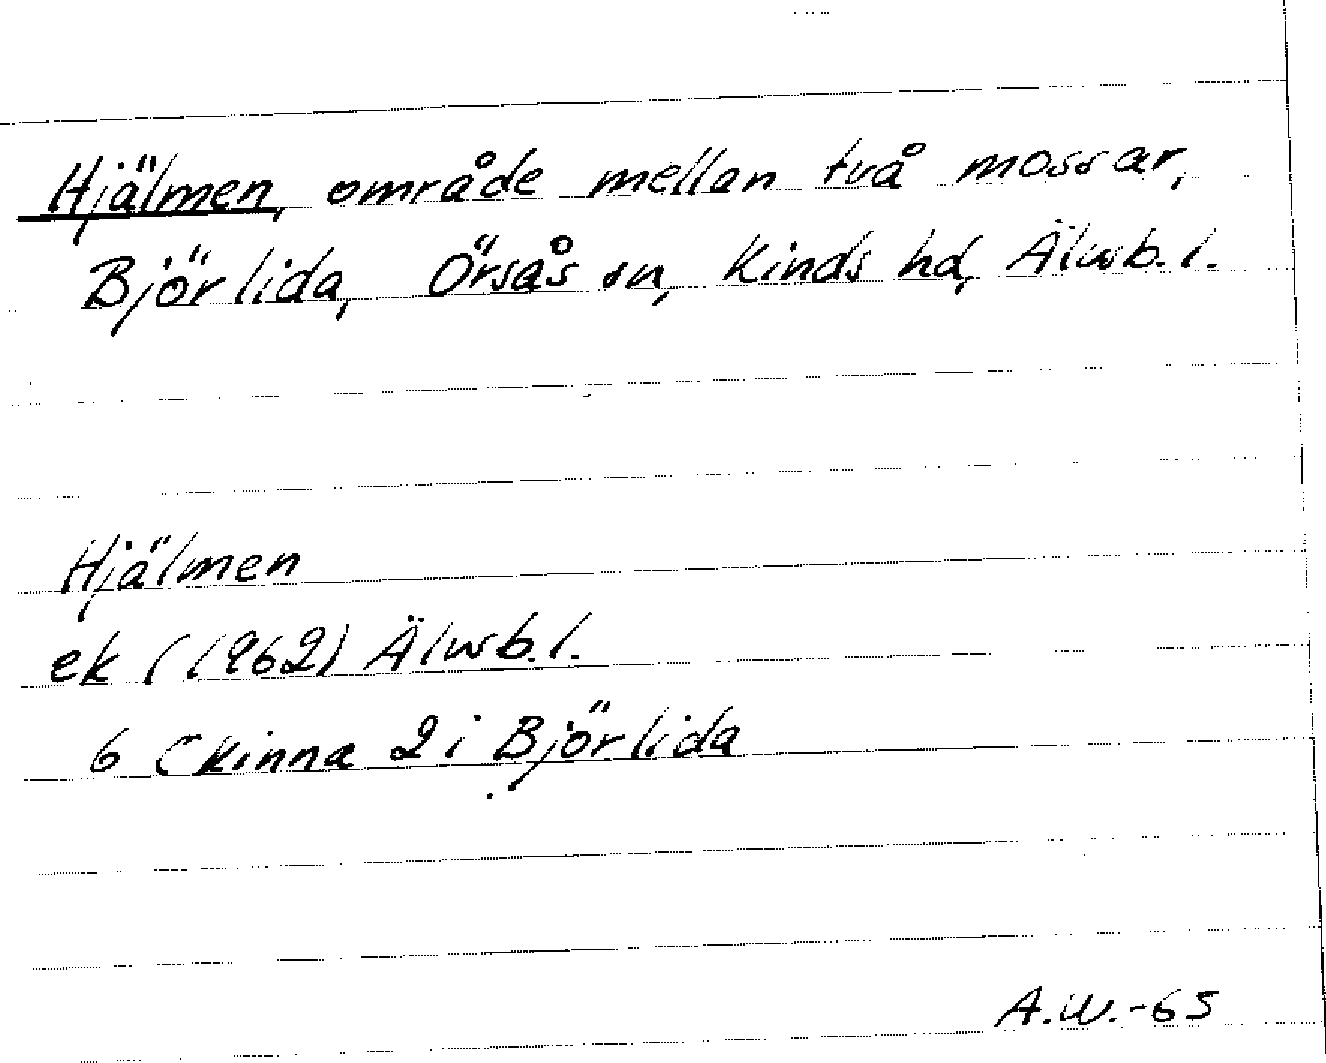 Hjälmen, område mellan två mossar,
Björlida, Örsås sn, Kinds hd, Älvsb. l.
Hjälmen
ek (1962) Älvsb. l.
6 Ckinna 2 i Björlida
A.W.-65